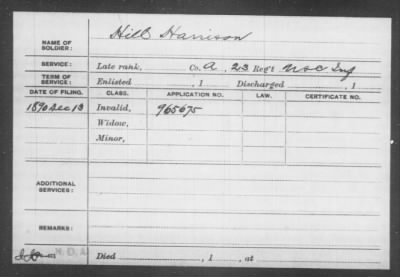 NAME OF SOLDIER: Hill Harrison
SERVICE: Late rank, Co. A, 23 Reg't USC Inf
TERM OF SERVICE: Enlisted , 1 Discharged , 1
DATE OF FILING. CLASS. APPLICATION NO. LAW. CERTIFICATE NO.
1890 Dec 13 Invalid, 965675
Widow,
Minor,
ADDITIONAL SERVICES:
REMARKS:
Died , 1 , at